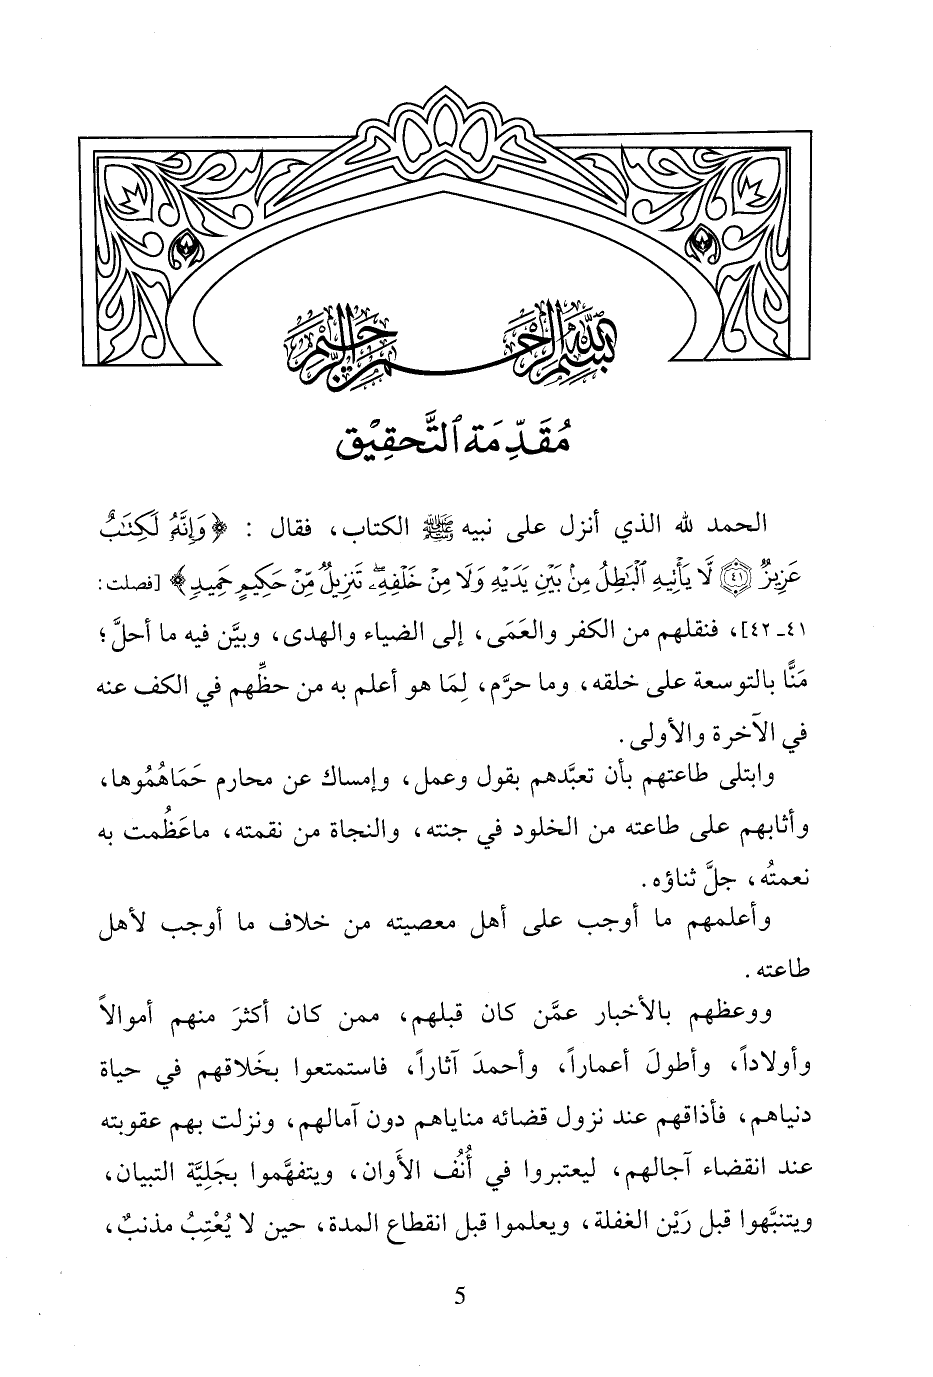 بسم الله الرحمن الرحيم
مُقَدِّمَة ٱلتَّحقِيْق
الحمد لله الذي أنزل على نبيه ﷺ الكتاب، فقال : ﴿وَإِنَّهُۥ لَكِتَٰبٌ
عَزِيزٌ ۝٤١ لَّا يَأْتِيهِ ٱلْبَٰطِلُ مِنۢ بَيْنِ يَدَيْهِ وَلَا مِنْ خَلْفِهِۦۖ تَنزِيلٌ مِّنْ حَكِيمٍ حَمِيدٍ﴾ [فصلت:
٤١ـ٤٢]، فنقلهم من الكفر والعَمَى، إلى الضياء والهدى، وبيَّن فيه ما أحلَّ؛
مَنًّا بالتوسعة على خلقه، وما حرَّم، لِمَا هو أعلم به من حظِّهم في الكف عنه
في الآخرة والأولى.
وابتلى طاعتهم بأن تعبَّدهم بقول وعمل، وإمساك عن محارم حَمَاهُمُوها،
وأثابهم على طاعته من الخلود في جنته، والنجاة من نقمته، ماعَظُمت به
نعمتُه، جلَّ ثناؤه.
وأعلمهم ما أوجب على أهل معصيته من خلاف ما أوجب لأهل
طاعته.
ووعظهم بالأخبار عمَّن كان قبلهم، ممن كان أكثرَ منهم أموالاً
وأولاداً، وأطولَ أعماراً، وأحمدَ آثاراً، فاستمتعوا بخَلاقهم في حياة
دنياهم، فأذاقهم عند نزول قضائه مناياهم دون آمالهم، ونزلت بهم عقوبته
عند انقضاء آجالهم، ليعتبروا في أُنُف الأَوان، ويتفهَّموا بجَلِيَّة التبيان،
ويتنبَّهوا قبل رَيْن الغفلة، ويعلموا قبل انقطاع المدة، حين لا يُعْتِبُ مذنبٌ،
5